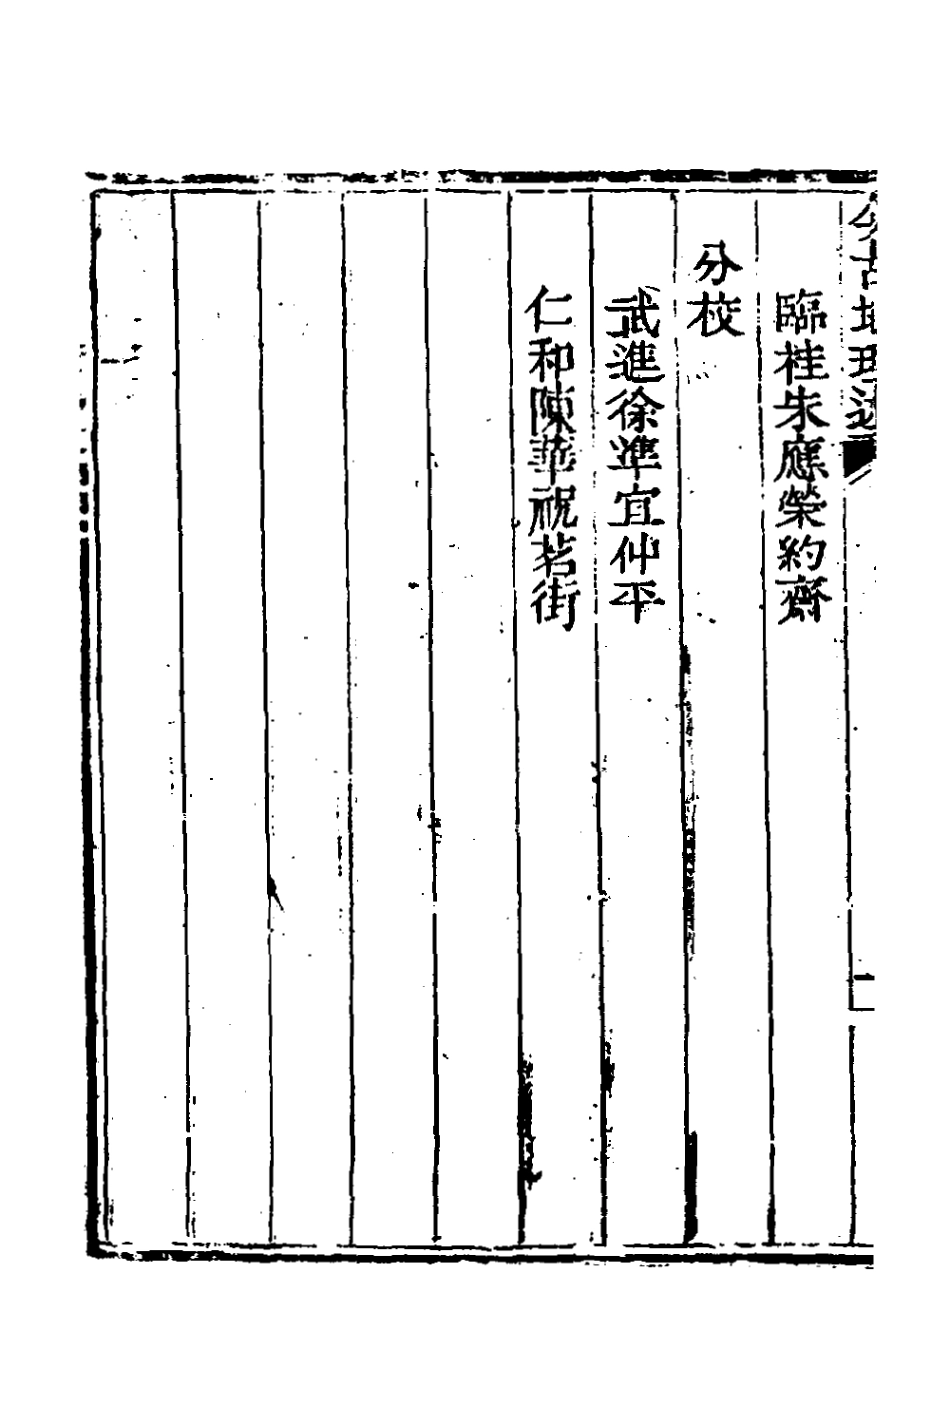 今古地理述
臨桂朱應榮約齋
分校
武進徐準宜仲平
仁和陳華祝茗街